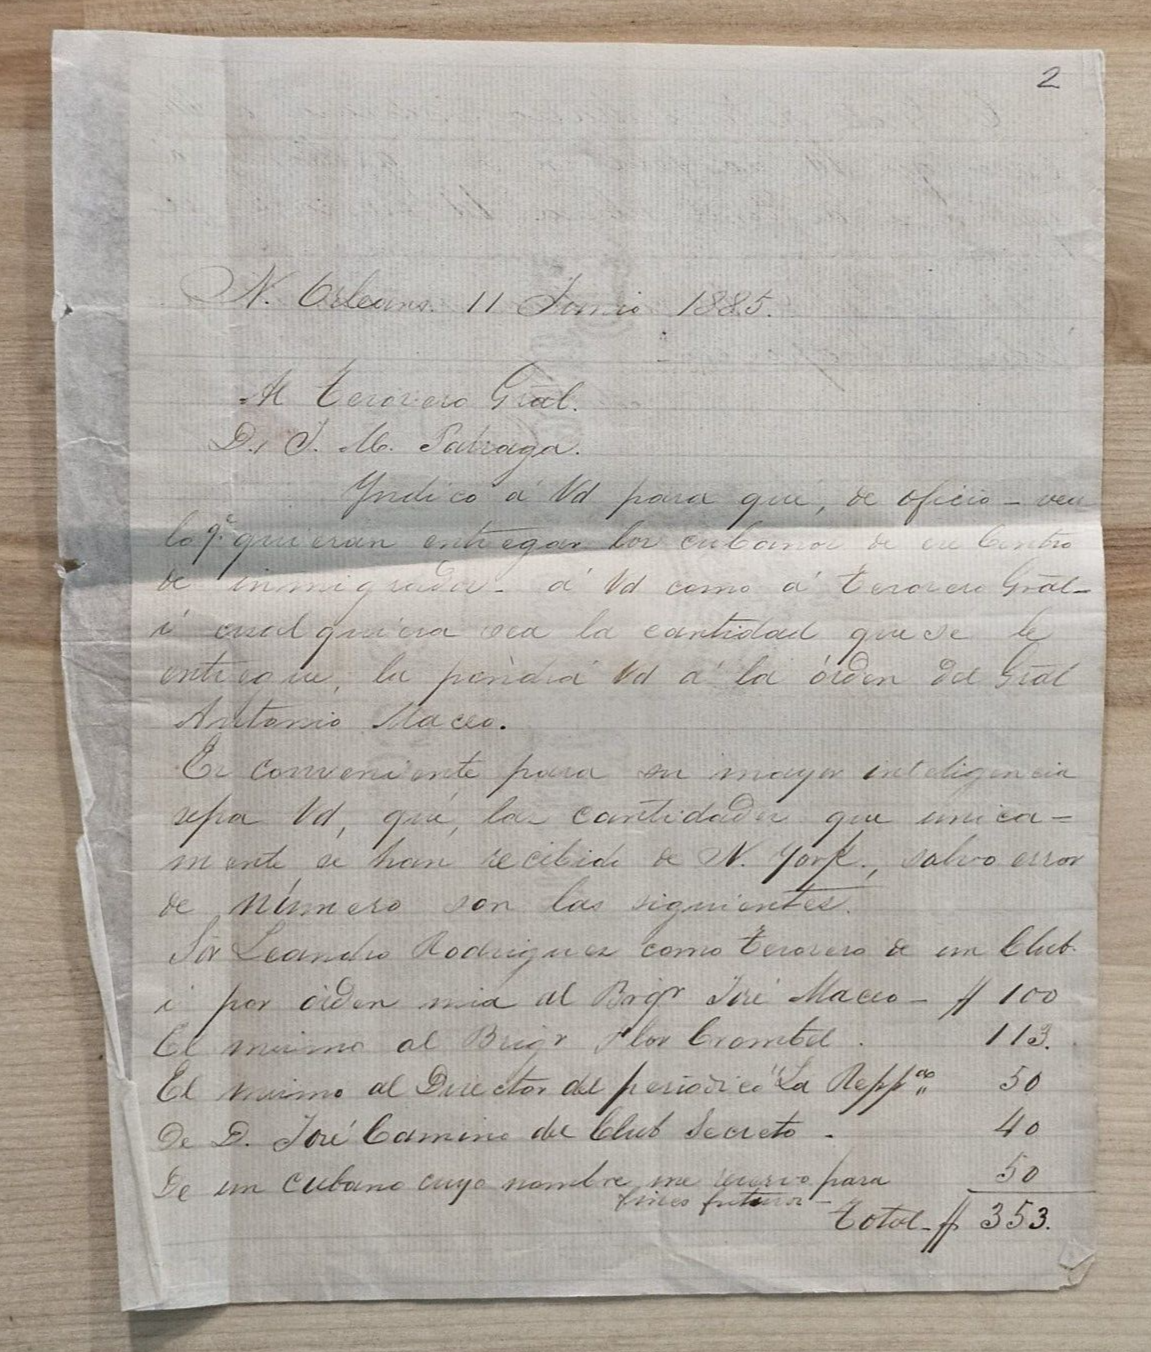 2
N. Orleans. 11 Junio 1885.
Al tesorero Gral.
D. J. M. Párraga.
Yndico á Vd para que, de oficio - vea
lo q.e quieran entregar los cubanos de ese Centro
de inmigrados - á Vd como á tesorero Gral -
i cualquiera sea la cantidad que se le
entregue, la pondrá Vd á la órden del Gral
Antonio Maceo.
Es conveniente para su mayor inteligencia
sepa Vd, que, las cantidades que única=
mente se han recibido de N. York., salvo error
de número son las siguientes.
Sor Leandro Rodriguez como tesorero de un Club.
i por órden mia al Brigr José Maceo - $ 100
El mismo al Brigr Flor Crombet . 113.
El mismo al Director del periódico "La Reppca" 50
De D. José Camino del Club Secreto - 40
De un cubano cuyo nombre me reservo para 50
fines futuros -
Total - $ 353.